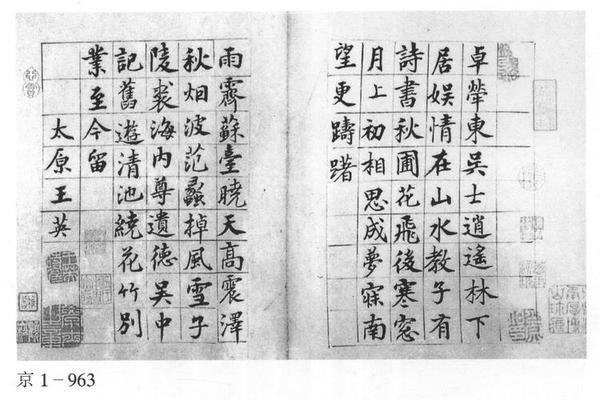 卓犖東吳士逍遙林下
居娱情在山水教子有
詩書秋圃花飛後寒窓
月上初相思成夢寐南
望更躊躇
雨霽蘇臺曉天高震澤
秋烟波范蠡棹風雪子
陵裘海内尊遺德吴中
記舊遊清池繞花竹別
業至今留
太原王英
京 1－963